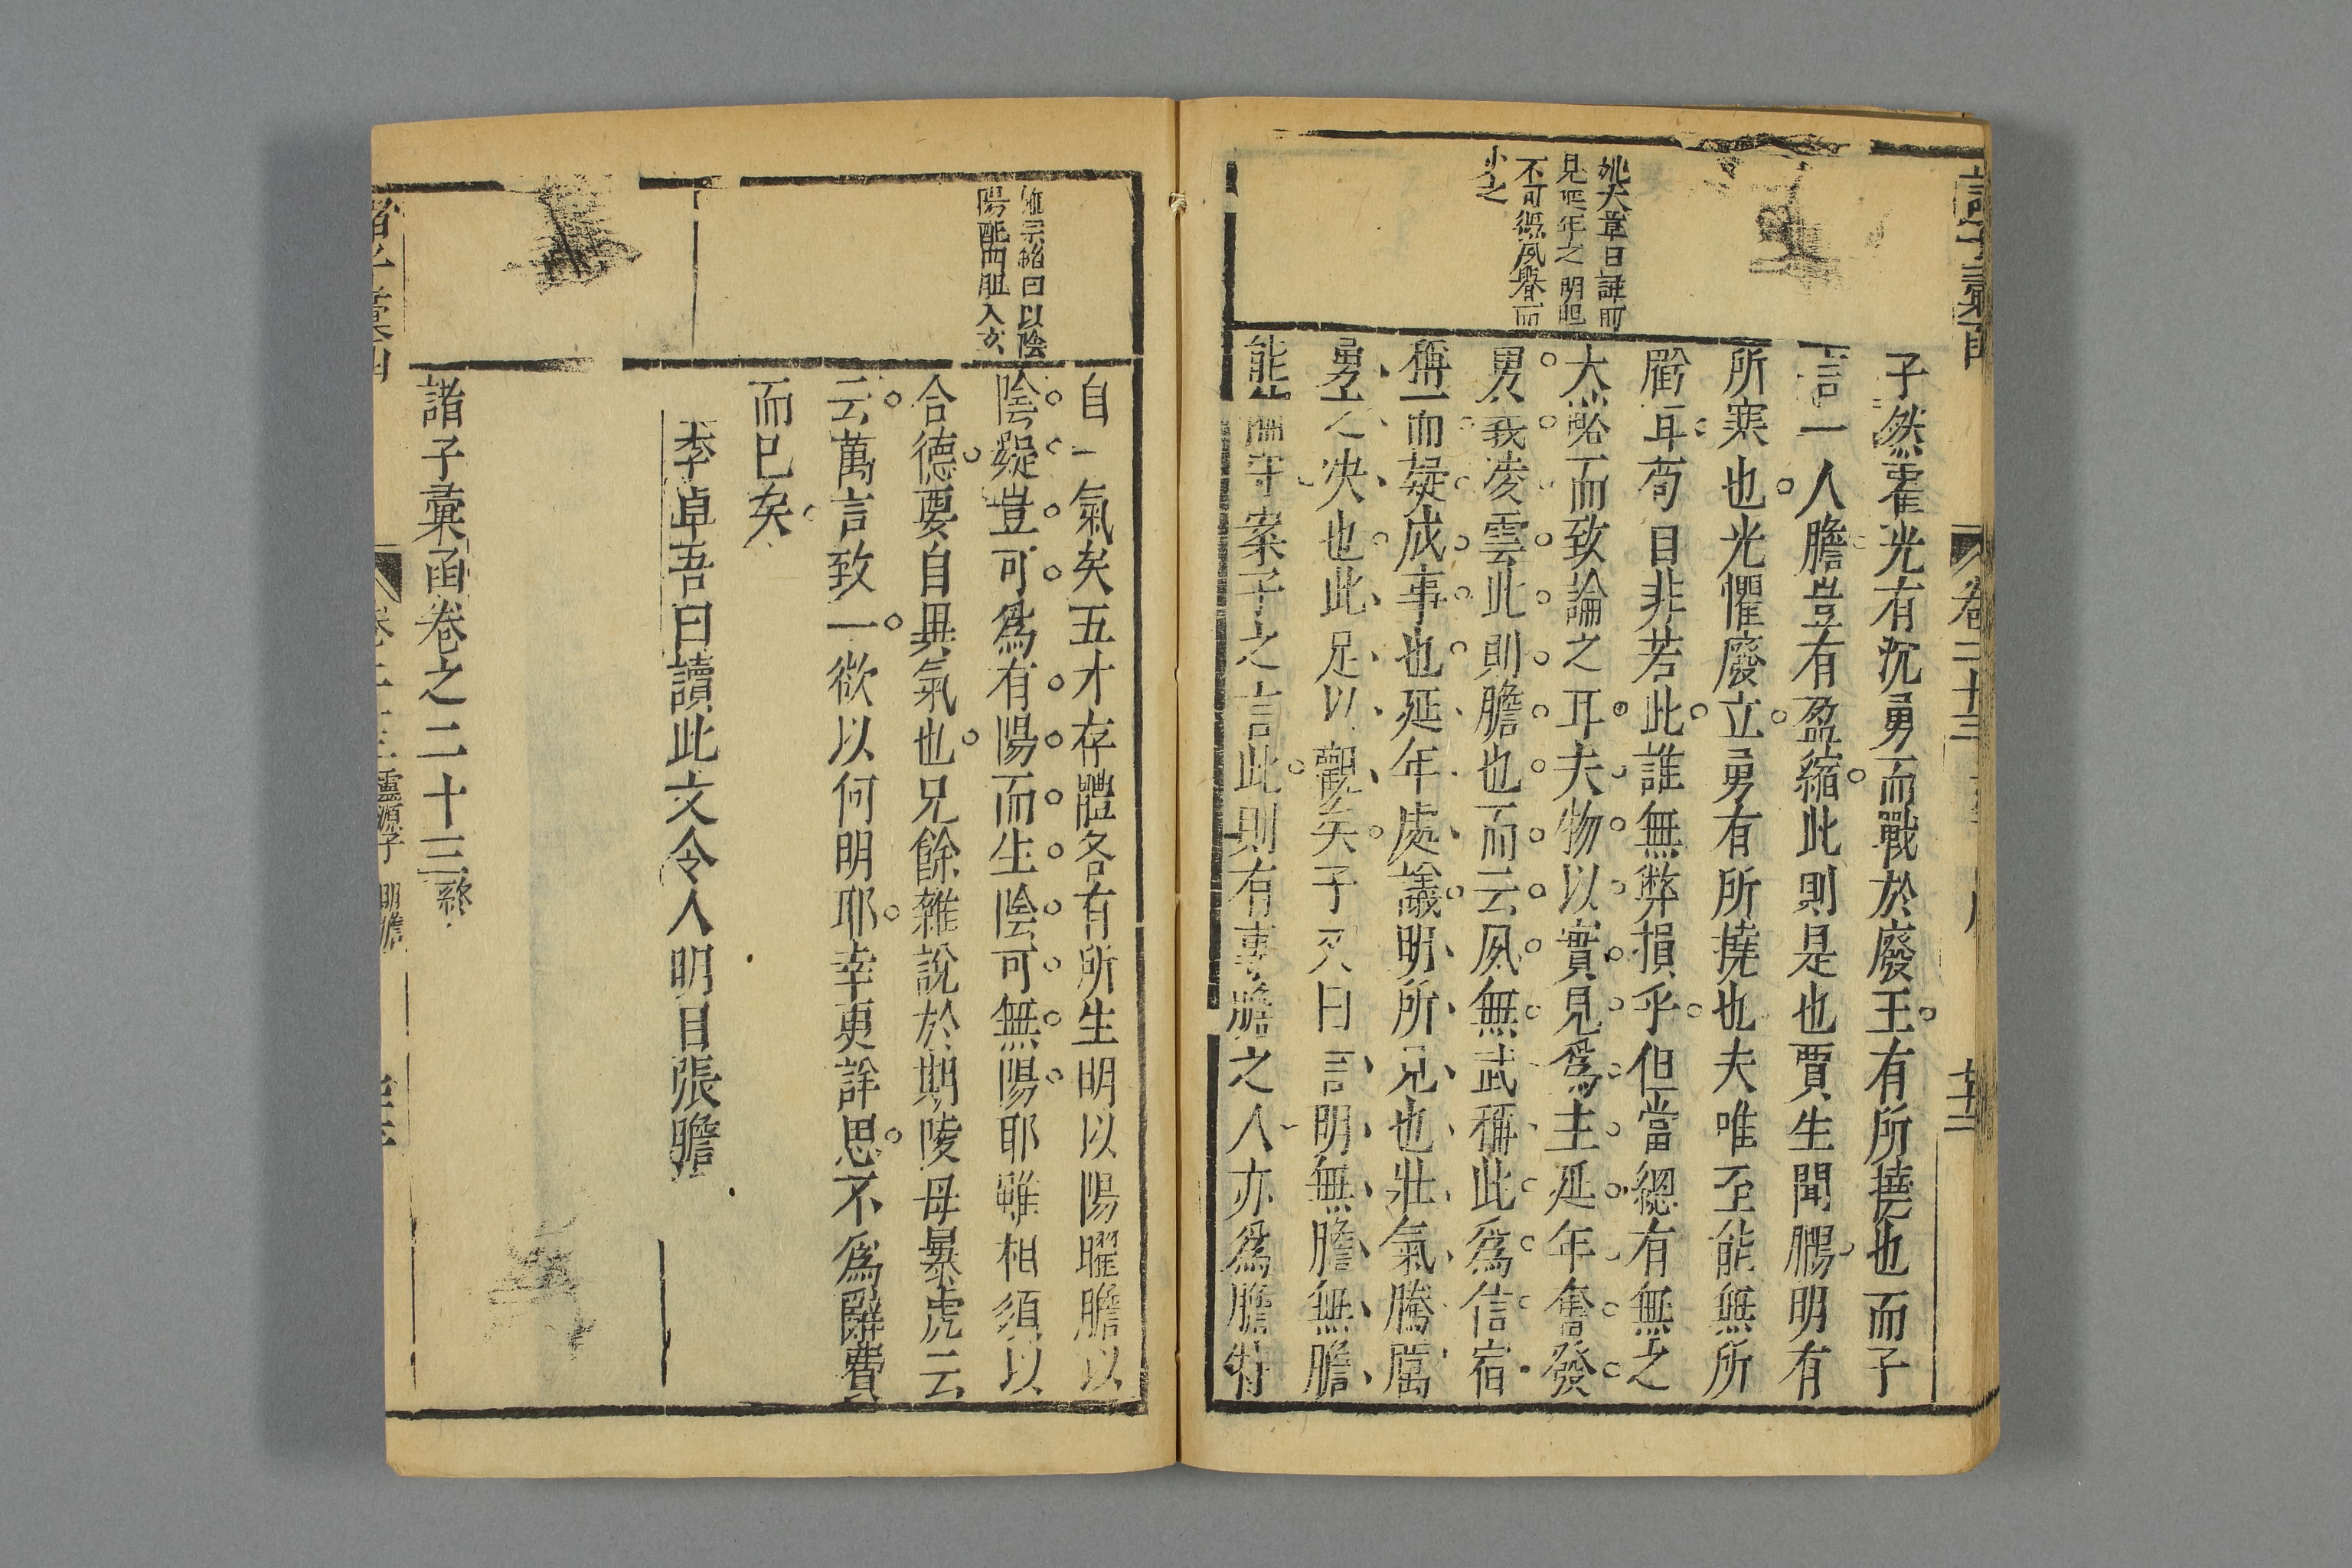 子然霍光有沉勇而戰於廢王有所撓也而子
言一人膽豈有盈縮此則是也賈生聞鵩明有
所塞也光懼廢立勇有所撓也夫唯至能無所
虧耳苟自非若此誰無弊損乎但當總有無之
大略而致論之耳夫物以實見為主延年奮發
勇義凌雲此則膽也而云夙無武稱此為信宿
稱而疑成事也延年處議明所見也壯氣騰厲
勇之决也此足以觀矣子又曰言明無膽無膽
能偏守案子之言此則有專膽之人亦為膽特
姚大章曰証所
見延年之明膽
不可徵夙譽而
少之
自一氣矣五才存體各有所生明以陽曜膽以
陰凝豈可為有陽而生陰可無陽耶雖相須以
合德要自異氣也兄餘雜說於期陵母暴虎云
云萬言致一欲以何明耶幸更詳思不為辭費
而已矣
李卓吾曰讀此文令人明目張膽
諸子彙函卷之二十三終
宗銘曰以陰
陽配四胆入玄
諸子彙函
卷二十三